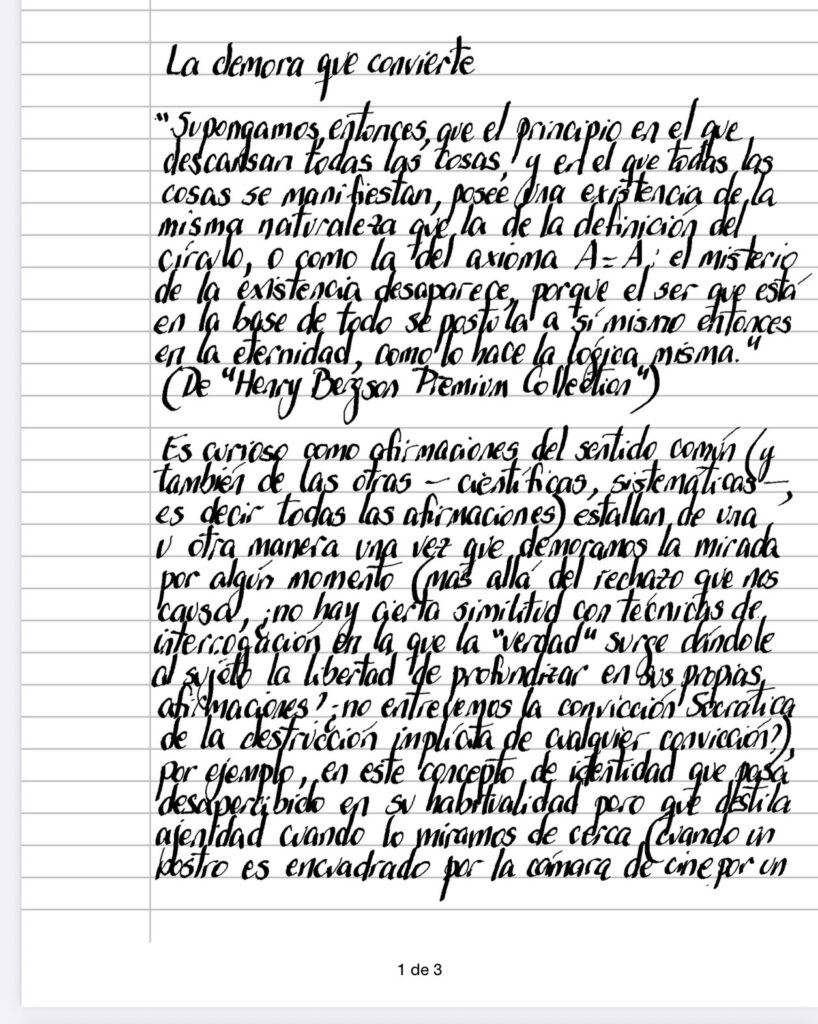 La demora que convierte
"Supongamos, entonces, que el principio en el que
descansan todas las cosas, y en el que todas las
cosas se manifiestan, posee una existencia de la
misma naturaleza que la de la definición del
círculo, o como la del axioma A = A: el misterio
de la existencia desaparece, porque el ser que está
en la base de todo se postula a sí mismo entonces
en la eternidad, como lo hace la lógica misma."
(De "Henry Bergson Premium Collection")
Es curioso como afirmaciones del sentido común (y
también de las otras – científicas, sistemáticas –,
es decir todas las afirmaciones) estallan de una
u otra manera una vez que demoramos la mirada
por algún momento (más allá del rechazo que nos
causa, ¿no hay cierta similitud con técnicas de
interrogación en la que la "verdad" surge dándole
al sujeto la libertad de profundizar en sus propias
afirmaciones? ¿no entrevemos la convicción Socrática
de la destrucción implícita de cualquier convicción?),
por ejemplo, en este concepto de identidad que pasa
desapercibido en su habitualidad pero que destila
ajenidad cuando lo miramos de cerca (cuando un
rostro es encuadrado por la cámara de cine por un
1 de 3